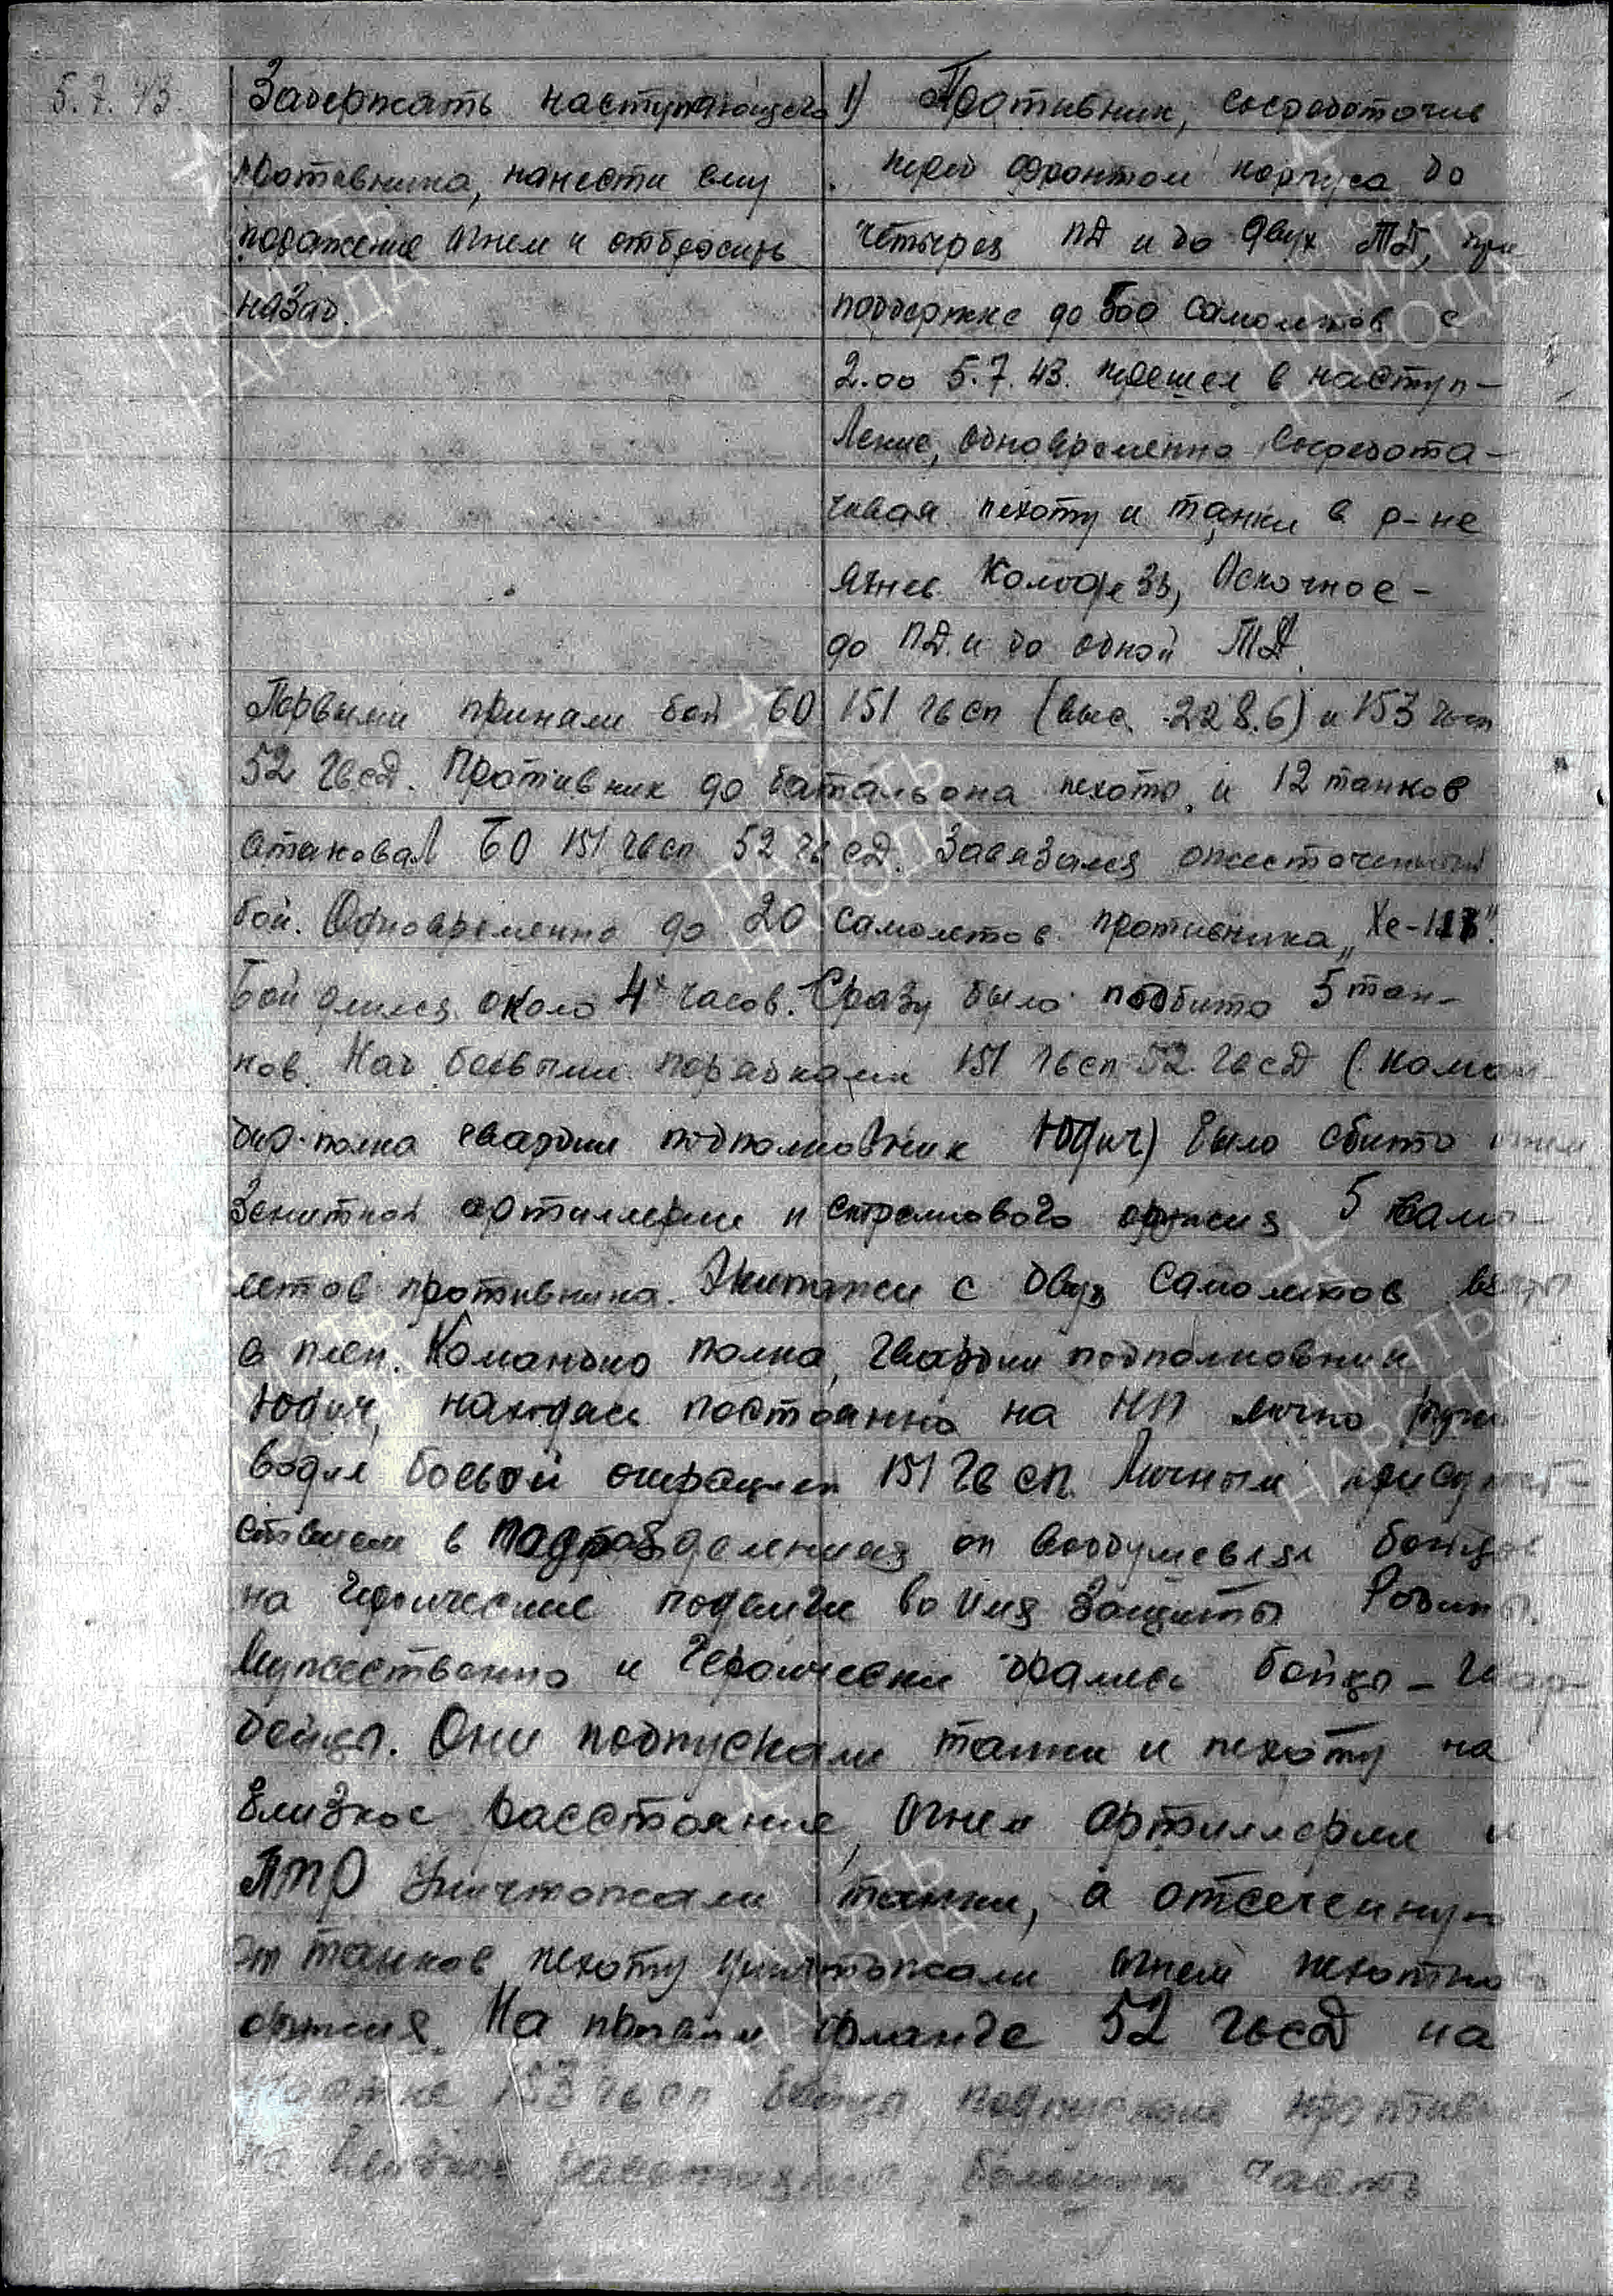 5.7.43.
Задержать наступающего
противника, нанести ему
поражение огнем и отбросить
назад.
1) Противник, сосредоточив
перед фронтом корпуса до
четырех ПД и до двух ТД, при
поддержке до 500 самолетов с
2.00 5.7.43. перешел в наступ-
ление, одновременно сосредота-
чивая пехоту и танки в р-не
Яхнев Колодезь,
до ПД и до одной ТД.
Первыми приняли бой БО 151 гвсп (выс. 228.6) и 153 гвсп
52 гвсд. Противник до батальона пехоты и 12 танков
атаковал БО 151 гвсп 52 гвсд. Завязался ожесточенный
бой. Одновременно до 20 самолетов противника „Хе-113".
Бой длился около 4х часов. Сразу было подбито 5 тан-
ков. Над боевыми порядками 151 гвсп 52 гвсд (коман-
дир полка гвардии подполковник Юдич) было сбито огнем
зенитной артиллерии и стрелкового оружия 5 само-
летов противника. Экипажи с двух самолетов взяты
в плен. Командир полка, гвардии подполковник
Юдич, находясь постоянно на НП лично руко-
водил боевой операцией 151 гв сп. Личным присут-
ствием в подразделениях он воодушевлял бойцов
на героические подвиги во имя защиты Родины.
Мужественно и героически дрались бойцы-гвар-
дейцы. Они подпускали танки и пехоту на
близкое расстояние, огнем артиллерии и
ПТР уничтожали танки, а отсеченную
от танков пехоту уничтожали огнем пехотного
оружия. На правом фланге 52 гвсд на
участке 153 гвсп бойцы, подпуская противника
на близкое расстояние, большую часть